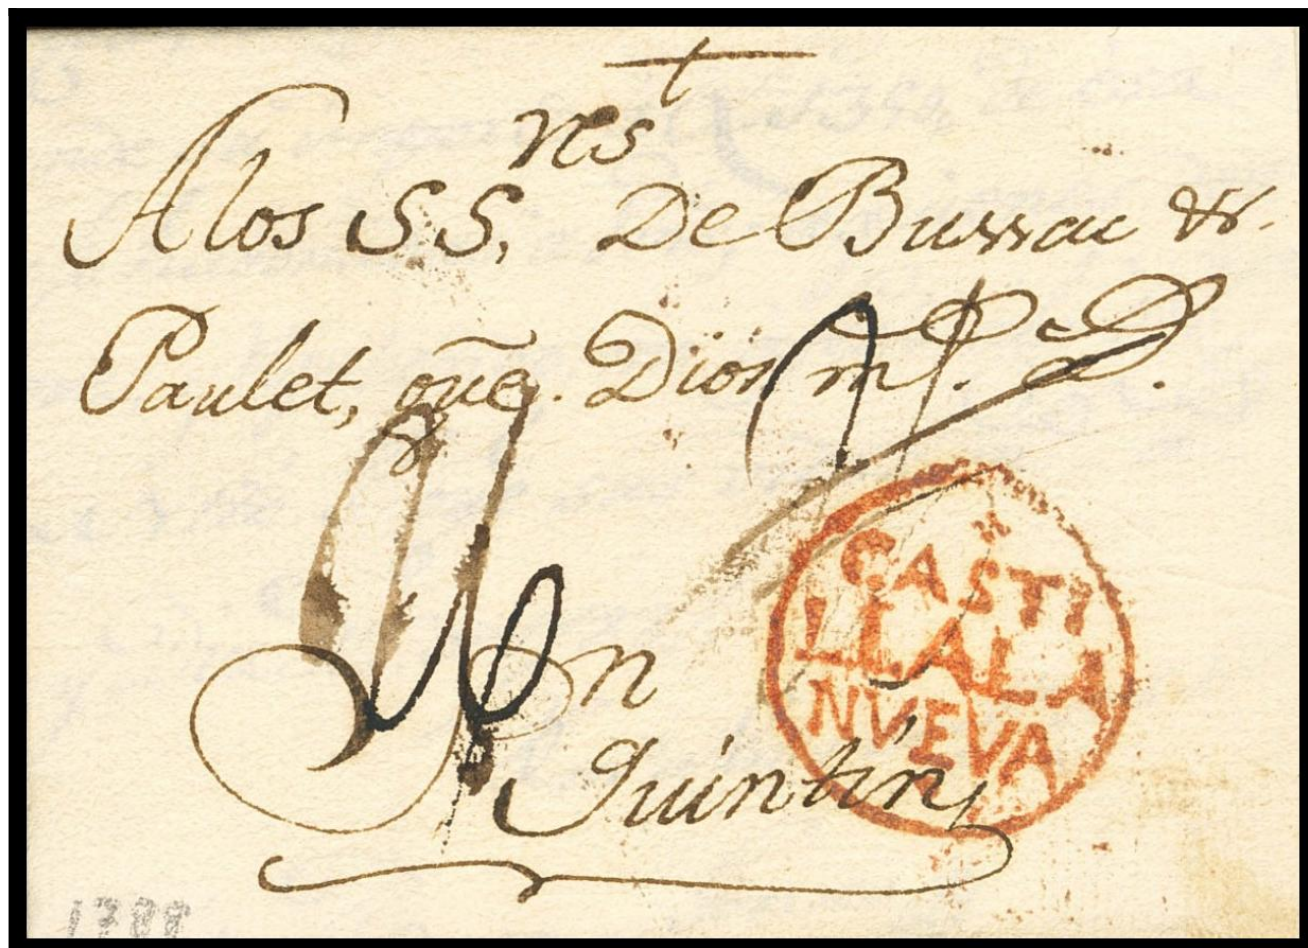 res
A los SS, De Bussac &
Paulet, que Dios m.
Sn
Quintin,
CASTI
LLALA
NVEVA
1788